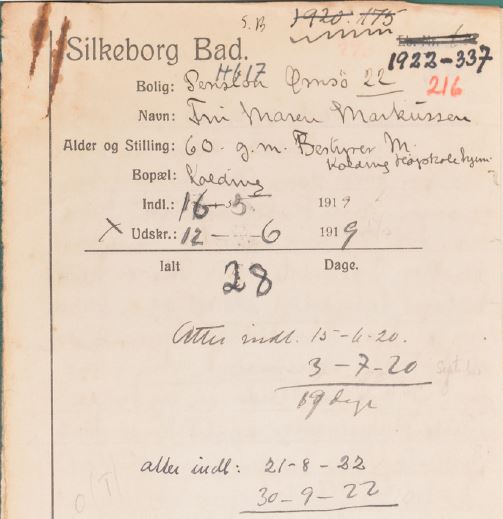 S.B
1920. 175
Silkeborg Bad.
1922-337
H617
216
Bolig: Pension Ørnsö 22
Navn: Fru Maren Markussen
Alder og Stilling: 60. g.m. Bestyrer M.
Kolding Højskolehjem
Bopæl: Kolding
Indl.: 16-5. 1919
X Udskr.: 12 - 6 1919
Ialt 28 Dage.
Atter indl. 15-6-20.
3-7-20
19 dage
atter indl: 21-8-22
30-9-22